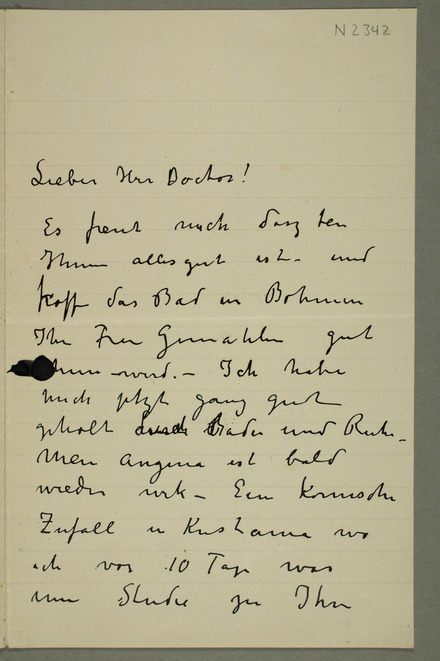 N 2342
Lieber Herr Doctor!
Es freut mich dasz bei
Ihnen alles gut ist – und
hoffe das Bad in Böhmen
Ihr Frau Gemahlin gut
thun wird. – Ich habe
mich jetzt ganz gut
geholt durch Bäder und Ruhe –
Meine Angina ist bald
wieder weg – Ein komische
Zufall in Kristiania wo
ich vor 10 Tage war
eine Studie zu Ihre